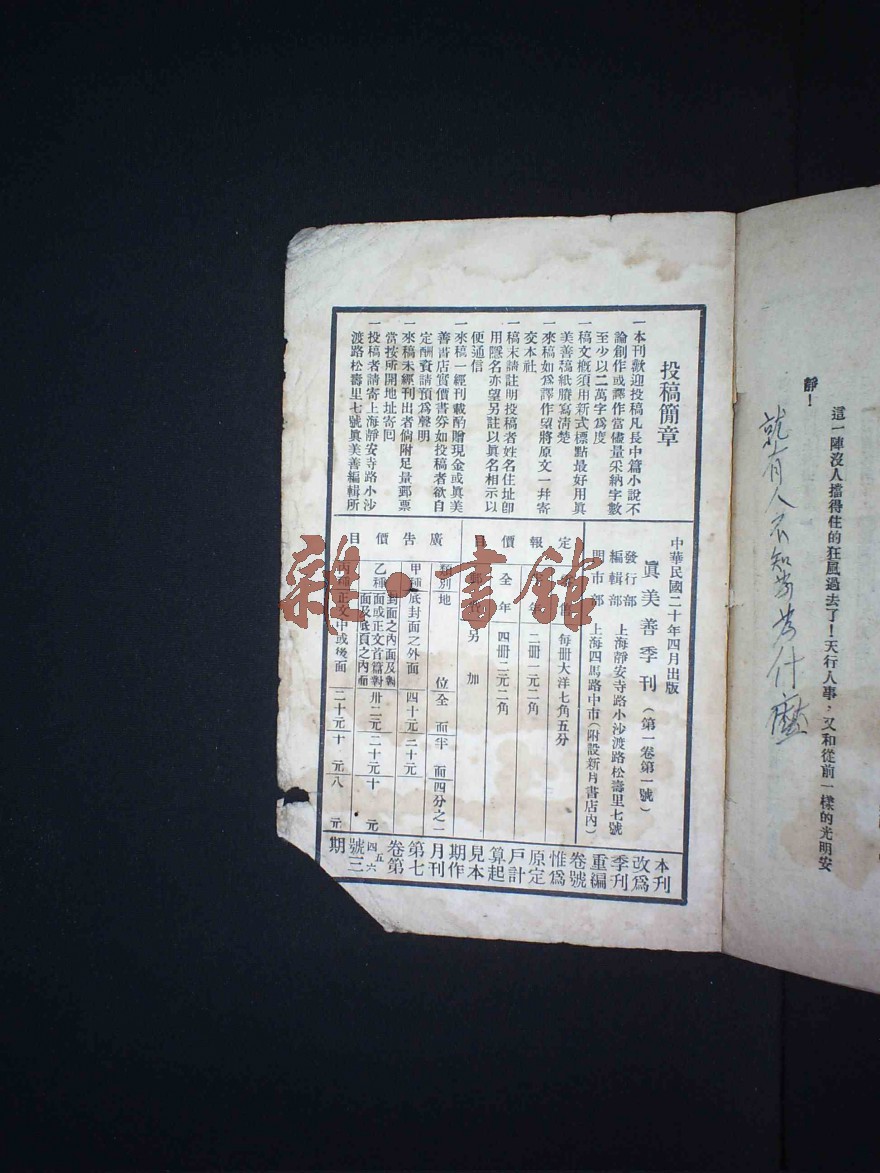 這一陣沒人擋得住的狂風過去了！天行人事，又和從前一樣的光明安
靜！
就有人不知
為什麼
投稿簡章
一本刊歡迎投稿凡長中篇小說不
論創作或譯作當儘量采納字數
至少以二萬字爲度
一稿文概須用新式標點最好用眞
美善稿紙謄寫清楚
一來稿如爲譯作望將原文一幷寄
交本社
一稿末請註明投稿者姓名住址卽
用隱名亦望另註以眞名相示以
便通信
一來稿一經刊載酌贈現金或眞美
善書店實價書劵如投稿者欲自
定酬資請預爲聲明
一來稿未經刊出者倘附足量郵票
當按所開地址寄回
一投稿者請寄上海靜安寺路小沙
渡路松壽里七號眞美善編輯所
中華民國二十年四月出版
眞美善季刊（第一卷第一號）
發行部
編輯部 上海靜安寺路小沙渡路松壽里七號
門市部 上海四馬路中市（附設新月書店內）
定報價目
每冊大洋七角五分
半年 二冊一元二角
全年 四冊二元二角
郵費 另加
廣告價目
類別 地位 全面 半面 四分之一
甲種 底封面之外面 四十元 二十元
乙種 封面之內面及對面或正文首篇對面及底頁之內面 卅二元 二十元 十元
丙種 正文中或後面 二十元 十元 八元
本刊改爲
季刊重編
卷號惟爲
原定戶計
算起見本
期作月刊
第七卷第
四五六號三
期
雜·書館